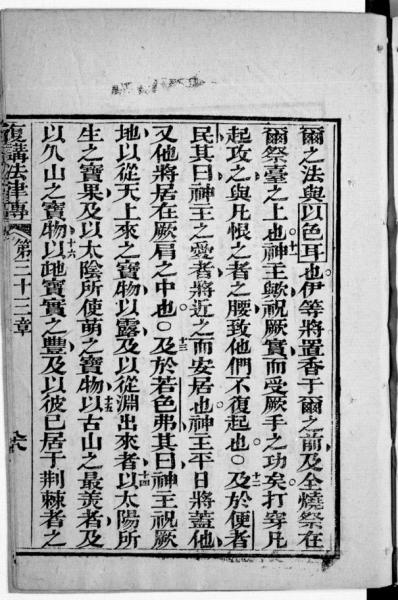 爾之法與以色耳也伊等將置香于爾之前及全燒祭在
爾祭臺之上也十一神王歟祝厥實而受厥手之功矣打穿凡
起攻之與凡恨之者之腰致他們不復起也○十二及於便者
民其曰神王之愛者將近之而安居也神王平日將蓋他
又他將居在厥肩之中也○十三及於若色弗其曰神王祝厥
地以從天上來之寶物以露及以從淵出來者十四以太陽所
生之寶果及以太陰所使萌之寶物十五以古山之最美者及
以久山之寶物十六以地寶實之豐及以彼已居于荊棘者之
復講法律傳 第三十三章